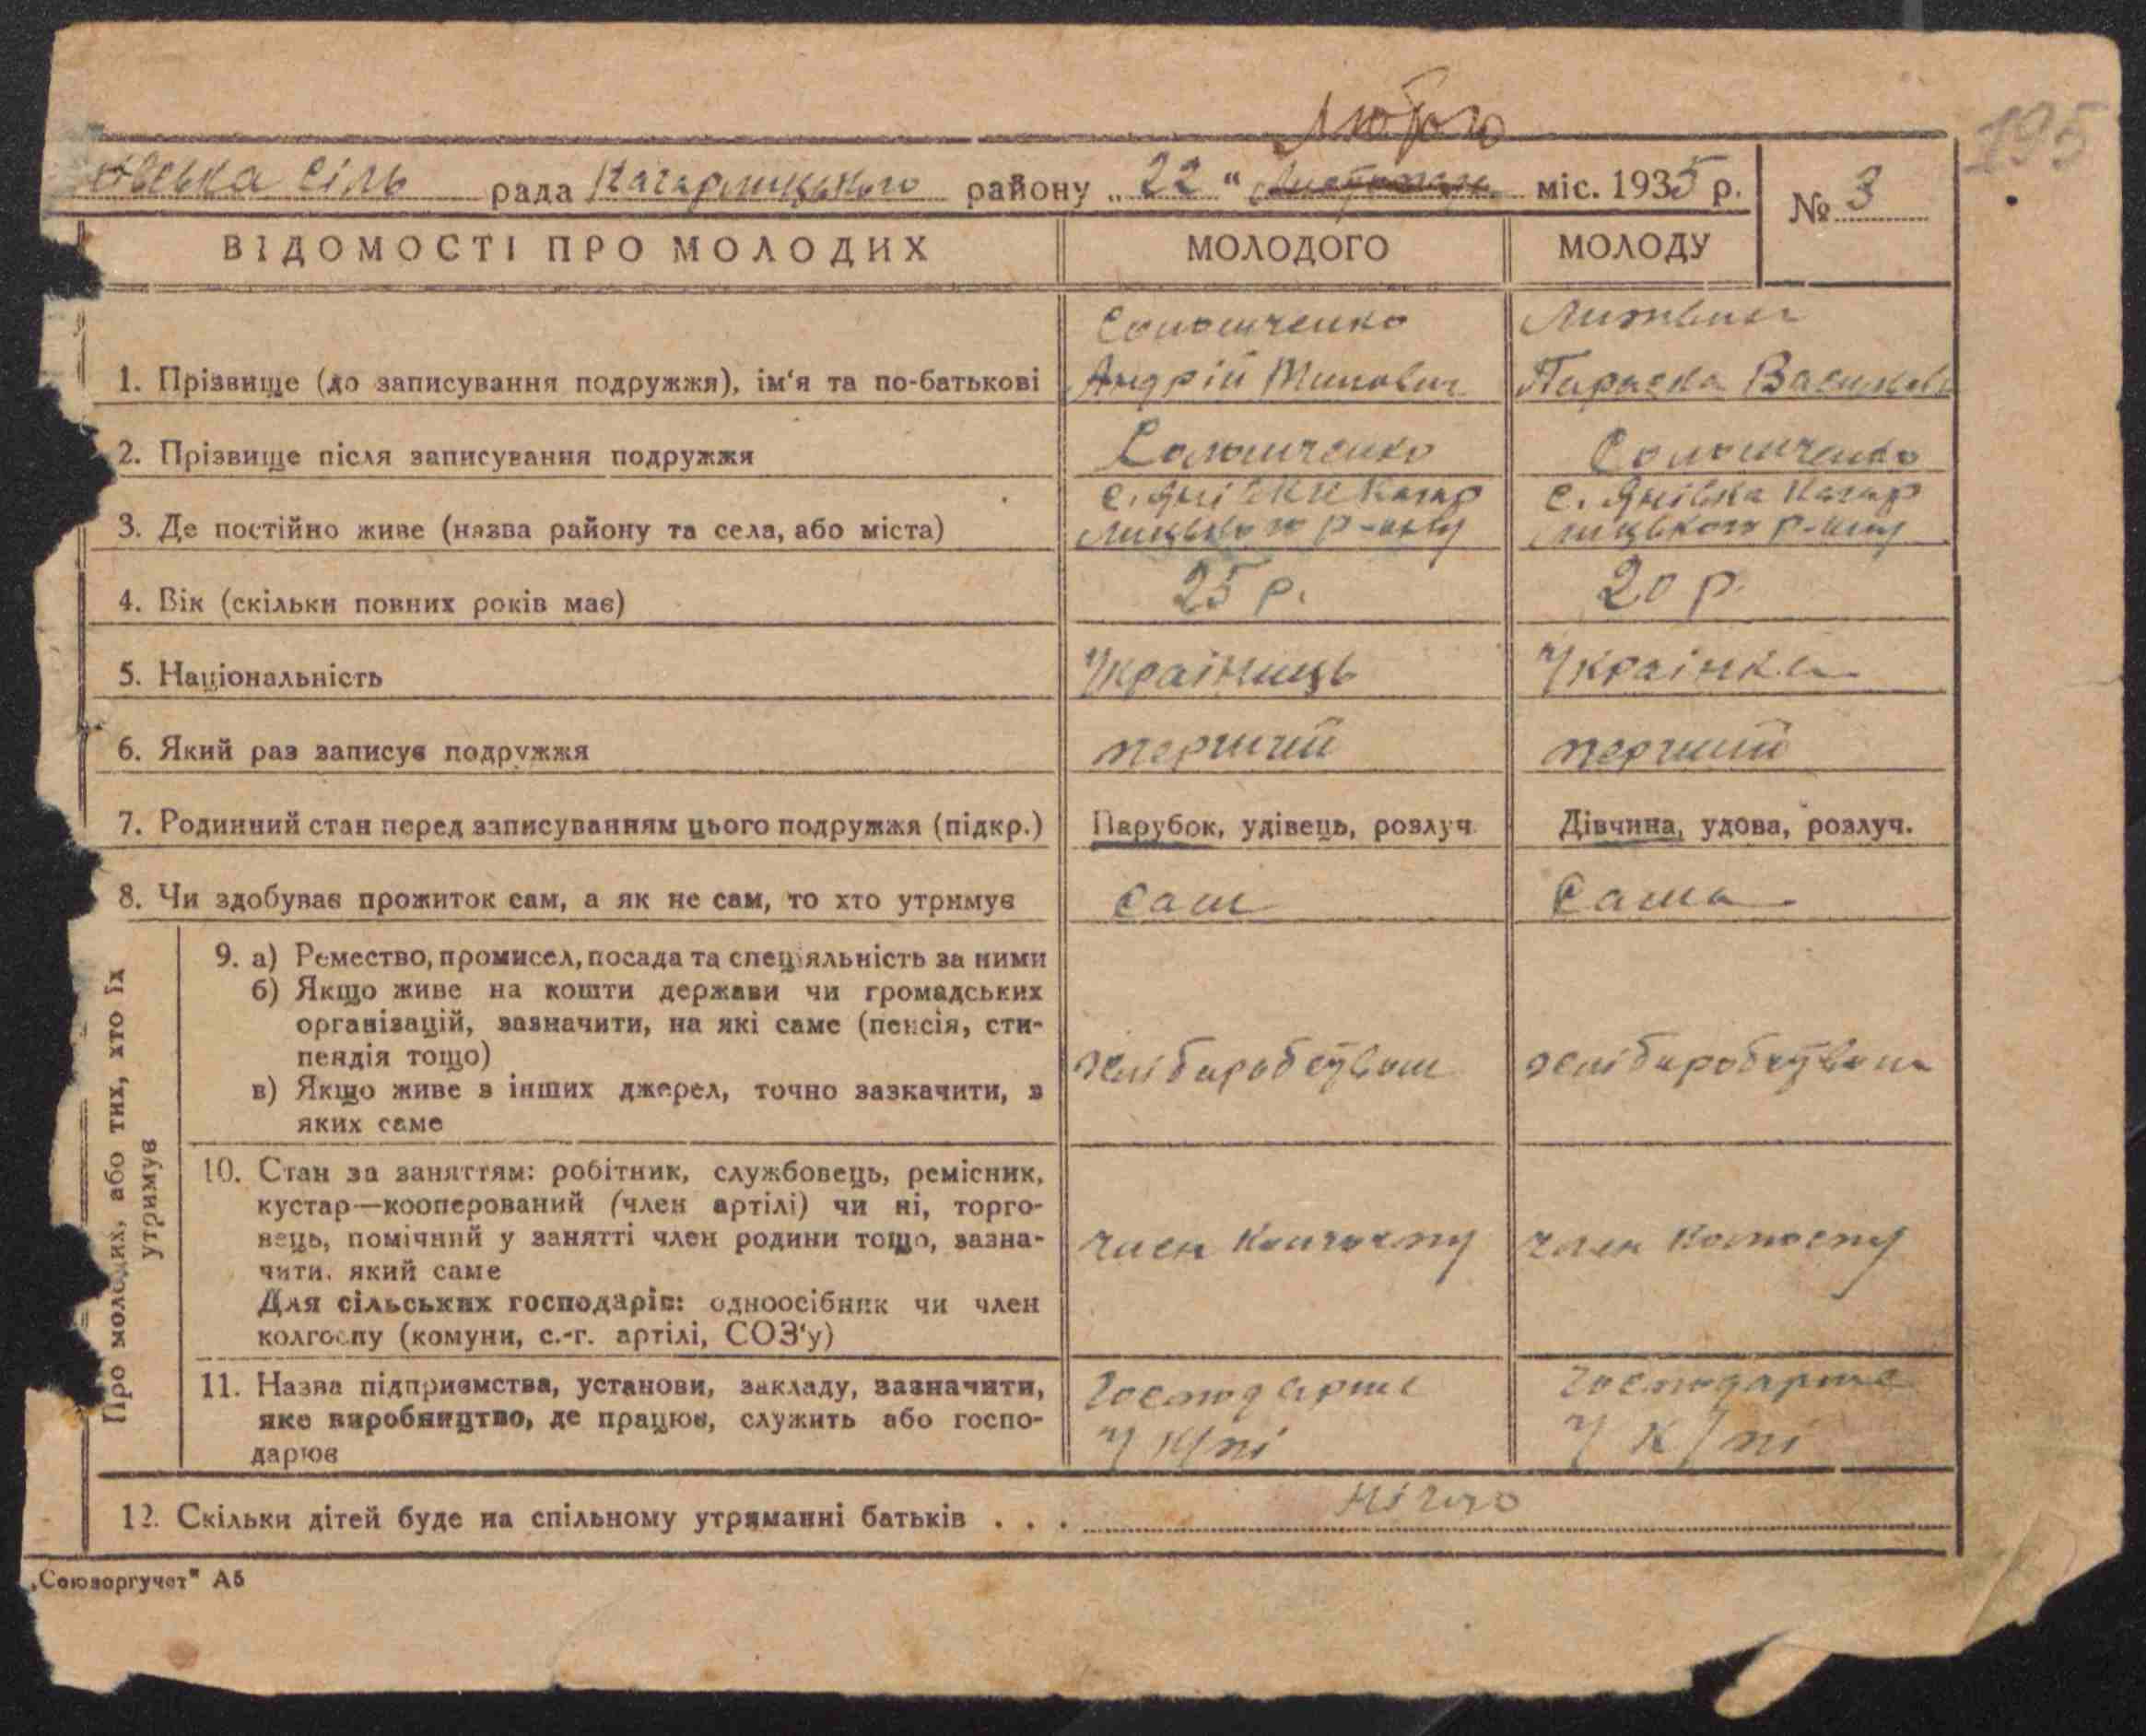 Лютого
195
овська сіль рада Кагарлицького району „ 22 “ Листопада міс. 1935 р.
№ 3
ВІДОМОСТІ ПРО МОЛОДИХ МОЛОДОГО МОЛОДУ
1. Прізвище (до записування подружжя), ім'я та по-батькові
Андрій Минович
Параска Васильовн
2. Прізвище після записування подружжя
3. Де постійно живе (назва району та села, або міста)
с. Янівки Кагар
лицького р-ну
с. Янівка Кагар
лицького р-ну
4. Вік (скільки повних років має) 25 р. 20 р.
5. Національність Українець Українка
6. Який раз записує подружжя перший перший
7. Родинний стан перед записуванням цього подружжя (підкр.) Парубок, удівець, розлуч. Дівчина, удова, розлуч.
8. Чи здобуває прожиток сам, а як не сам, то хто утримує сам сама
Про молодих, або тих, хто їх
утримує
9. а) Ремество, промисел, посада та спеціяльність за ними
б) Якщо живе на кошти держави чи громадських
організацій, зазначити, на які саме (пенсія, сти-
пендія тощо)
в) Якщо живе з інших джерел, точно зазкачити, з
яких саме
10. Стан за заняттям: робітник, службовець, ремісник,
кустар—кооперований (член артілі) чи ні, торго-
вець, помічний у занятті член родини тощо, зазна-
чити, який саме
Для сільських господарів: одноосібник чи член
колгоспу (комуни, с.-г. артілі, СОЗ'у)
член колгоспу
член колгоспу
11. Назва підприємства, установи, закладу, зазначити,
яке виробництво, де працює, служить або госпо-
дарює
у к/пі
у к/пі
12. Скільки дітей буде на спільному утриманні батьків . . .
„Союзоргучет" А5